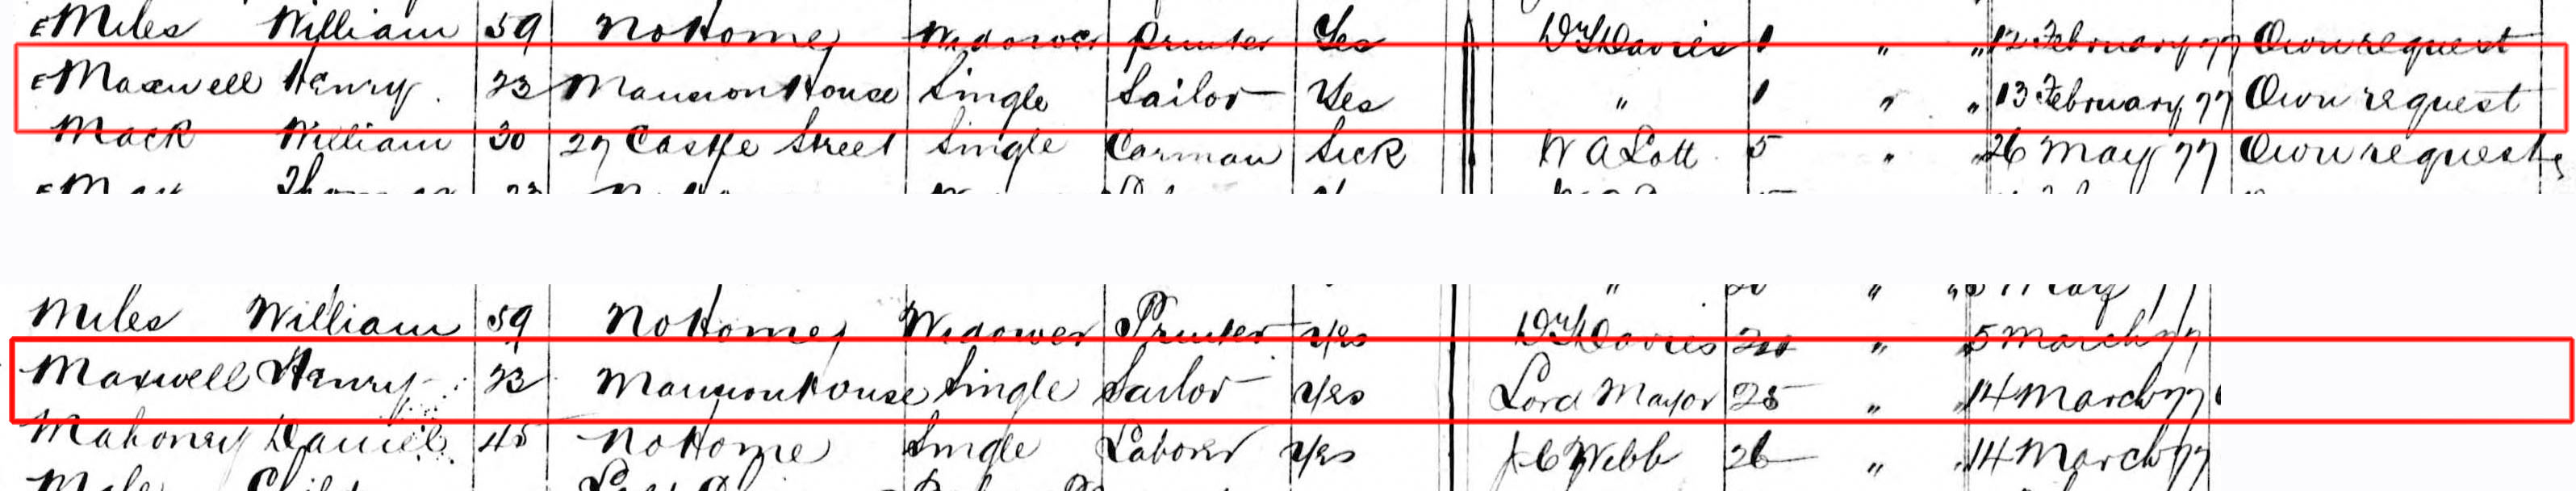 E Miles William 59 No Home Widower Printer Yes D G Davies 1 " " 12 February 77 Own request
E Maxwell Henry. 23 Mansion House Single Sailor Yes " 1 " " 13 February 77 Own request
Mack William 30 27 Castle Street Single Carman Sick W A Lott 5 " " 26 May 77 Own request
Miles William 59 No Home Widower Printer Yes Davies " " 5 March 77
Maxwell Henry 23 Mansion House Single Sailor Yes Lord Mayor 25 " " 14 March 77
Mahoney Daniel 45 No Home Single Laborer Yes J C Webb 26 " " 14 March 77